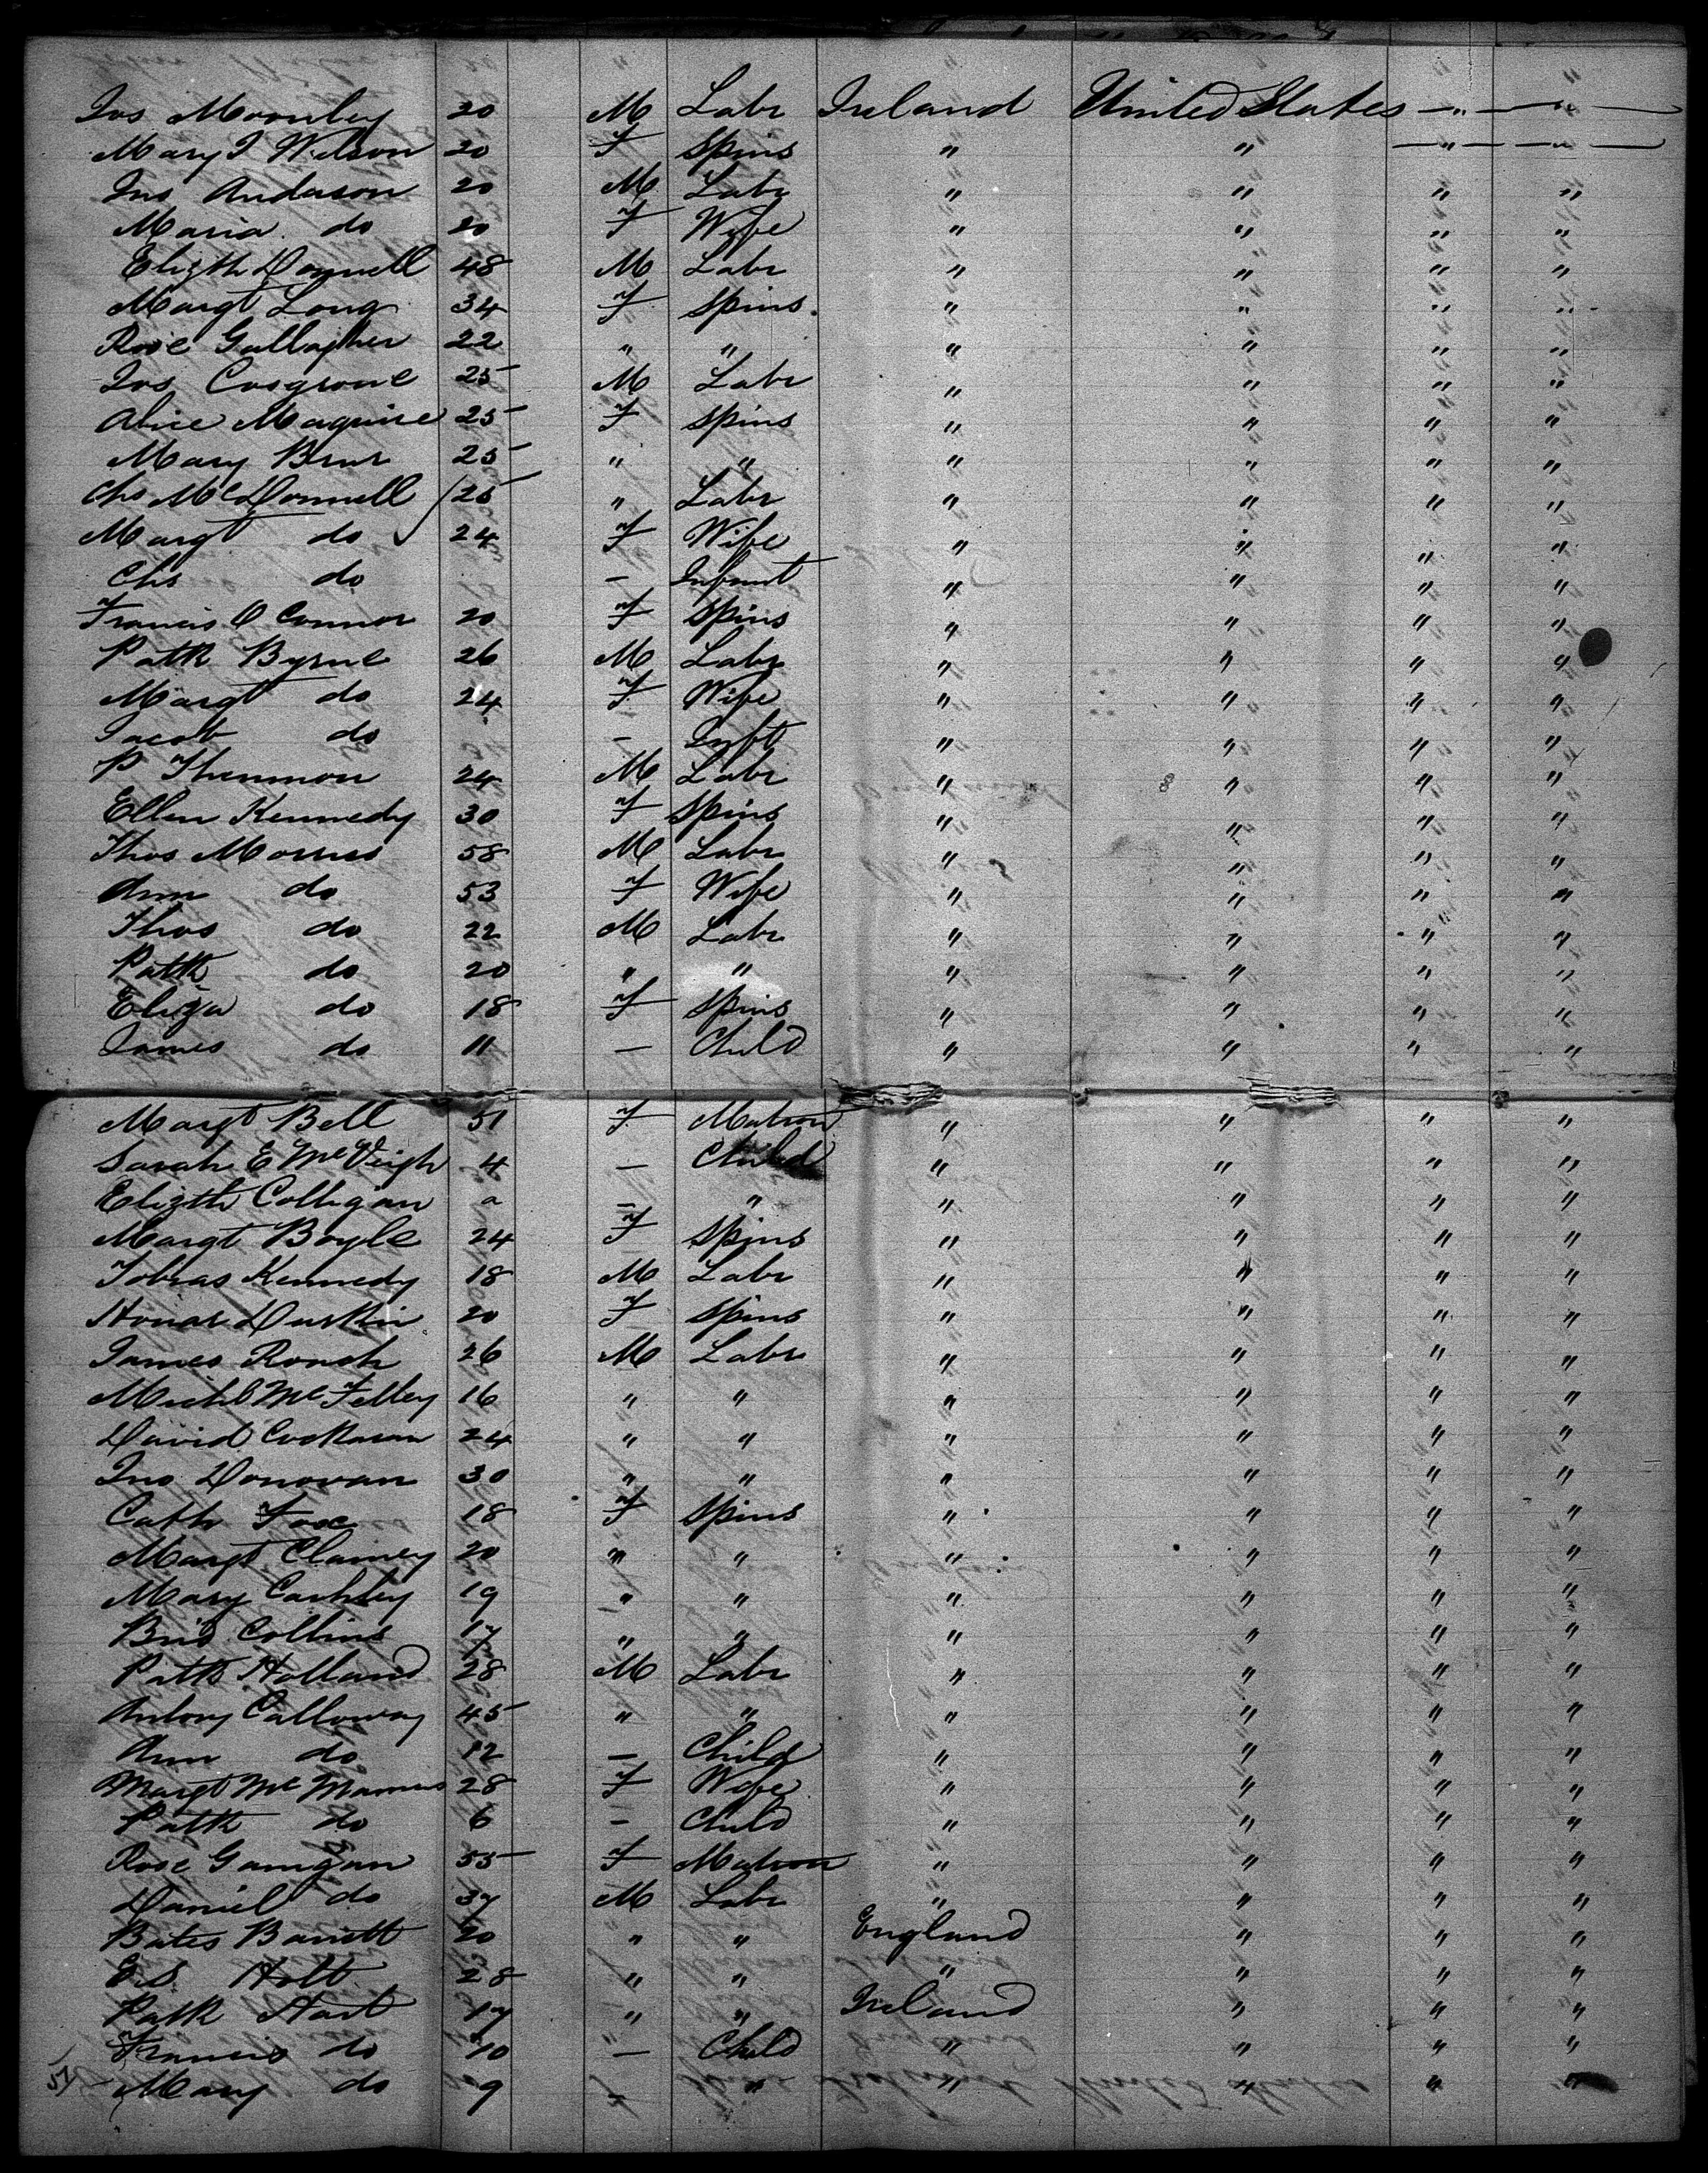 Jos Moonley 20 M Labr Ireland United States — " — " —
Mary J Wilson 20 F Spins " " — " — " —
Jno Anderson 20 M Labr " " " "
Maria do 20 F Wife " " " "
Elizth Donnell 48 M Labr " " " "
Margt Long 34 F Spins. " " " "
Rose Gallagher 22 " " " " " "
Jos Cosgrove 25 M Labr " " " "
Alice Maguire 25 F Spins " " " "
Mary Brur 25 " " " " " "
Chs McDonnell 25 " Labr " " " "
Margt do 24 F Wife " " " "
Chs do — Infant " " " "
Francis O Connor 20 F Spins " " " "
Patk Byrne 26 M Labr " " " "
Margt do 24 F Wife " " " "
Jacob do — Inft " " " "
P 24 M Labr " " " "
Ellen Kennedy 30 F Spins " " " "
Thos Morris 58 M Labr " " " "
Ann do 53 F Wife " " " "
Thos do 22 M Labr " " " "
Patk do 20 " " " " " "
Eliza do 18 F Spins " " " "
James do 11 — Child " " " "
Margt Bell 51 F Matron " " " "
Sarah E McVeigh 4 — Child " " " "
Elizth Colligan a — " " " " "
Margt Boyle 24 F Spins " " " "
Tobias Kennedy 18 M Labr " " " "
Honar Durkin 20 F Spins " " " "
James Roush 26 M Labr " " " "
Michl McFelley 16 " " " " " "
David 24 " " " " " "
Jno Donovan 30 " " " " " "
Cath Fox 18 F Spins " " " "
Margt Clamey 20 " " " " " "
Mary 19 " " " " " "
Brid Collins 17 " " " " " "
Patk Holland 28 M Labr " " " "
Antony Calloway 45 " " " " " "
Ann do 12 — Child " " " "
Margt McManus 28 F Wife " " " "
Patk do 6 — Child " " " "
Rose Garrigan 55 F Matron " " " "
Daniel do 37 M Labr " " " "
Bates Barrett 20 " " England " " "
E.S. Holt 28 " " " " " "
Patk Hart 17 " " Ireland " " "
Francis do 10 — Child " " " "
51 Mary do 9 F " " " " "